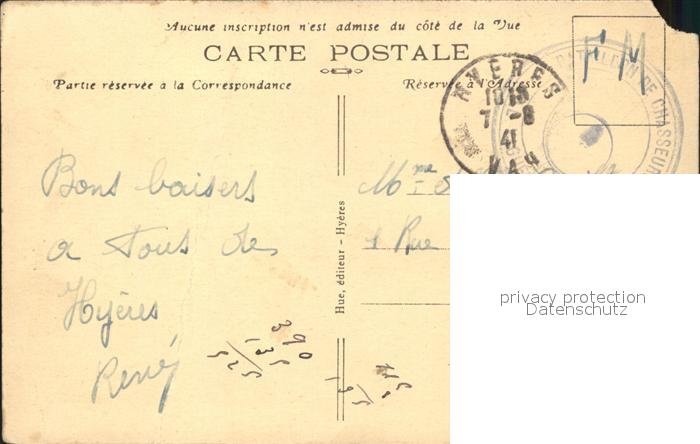 Aucune inscription n'est admise du côté de la Vue
CARTE POSTALE
Partie réservée à la Correspondance
Réservée à l'Adresse
F M
HYERES
1815
7 -8
41
VAR
BATAILLON DE CHASSEURS
Bons baisers
a tous de
Hyères
René
Mme
1 Rue
Hue, éditeur - Hyères
390
135
525
195
privacy protection
Datenschutz